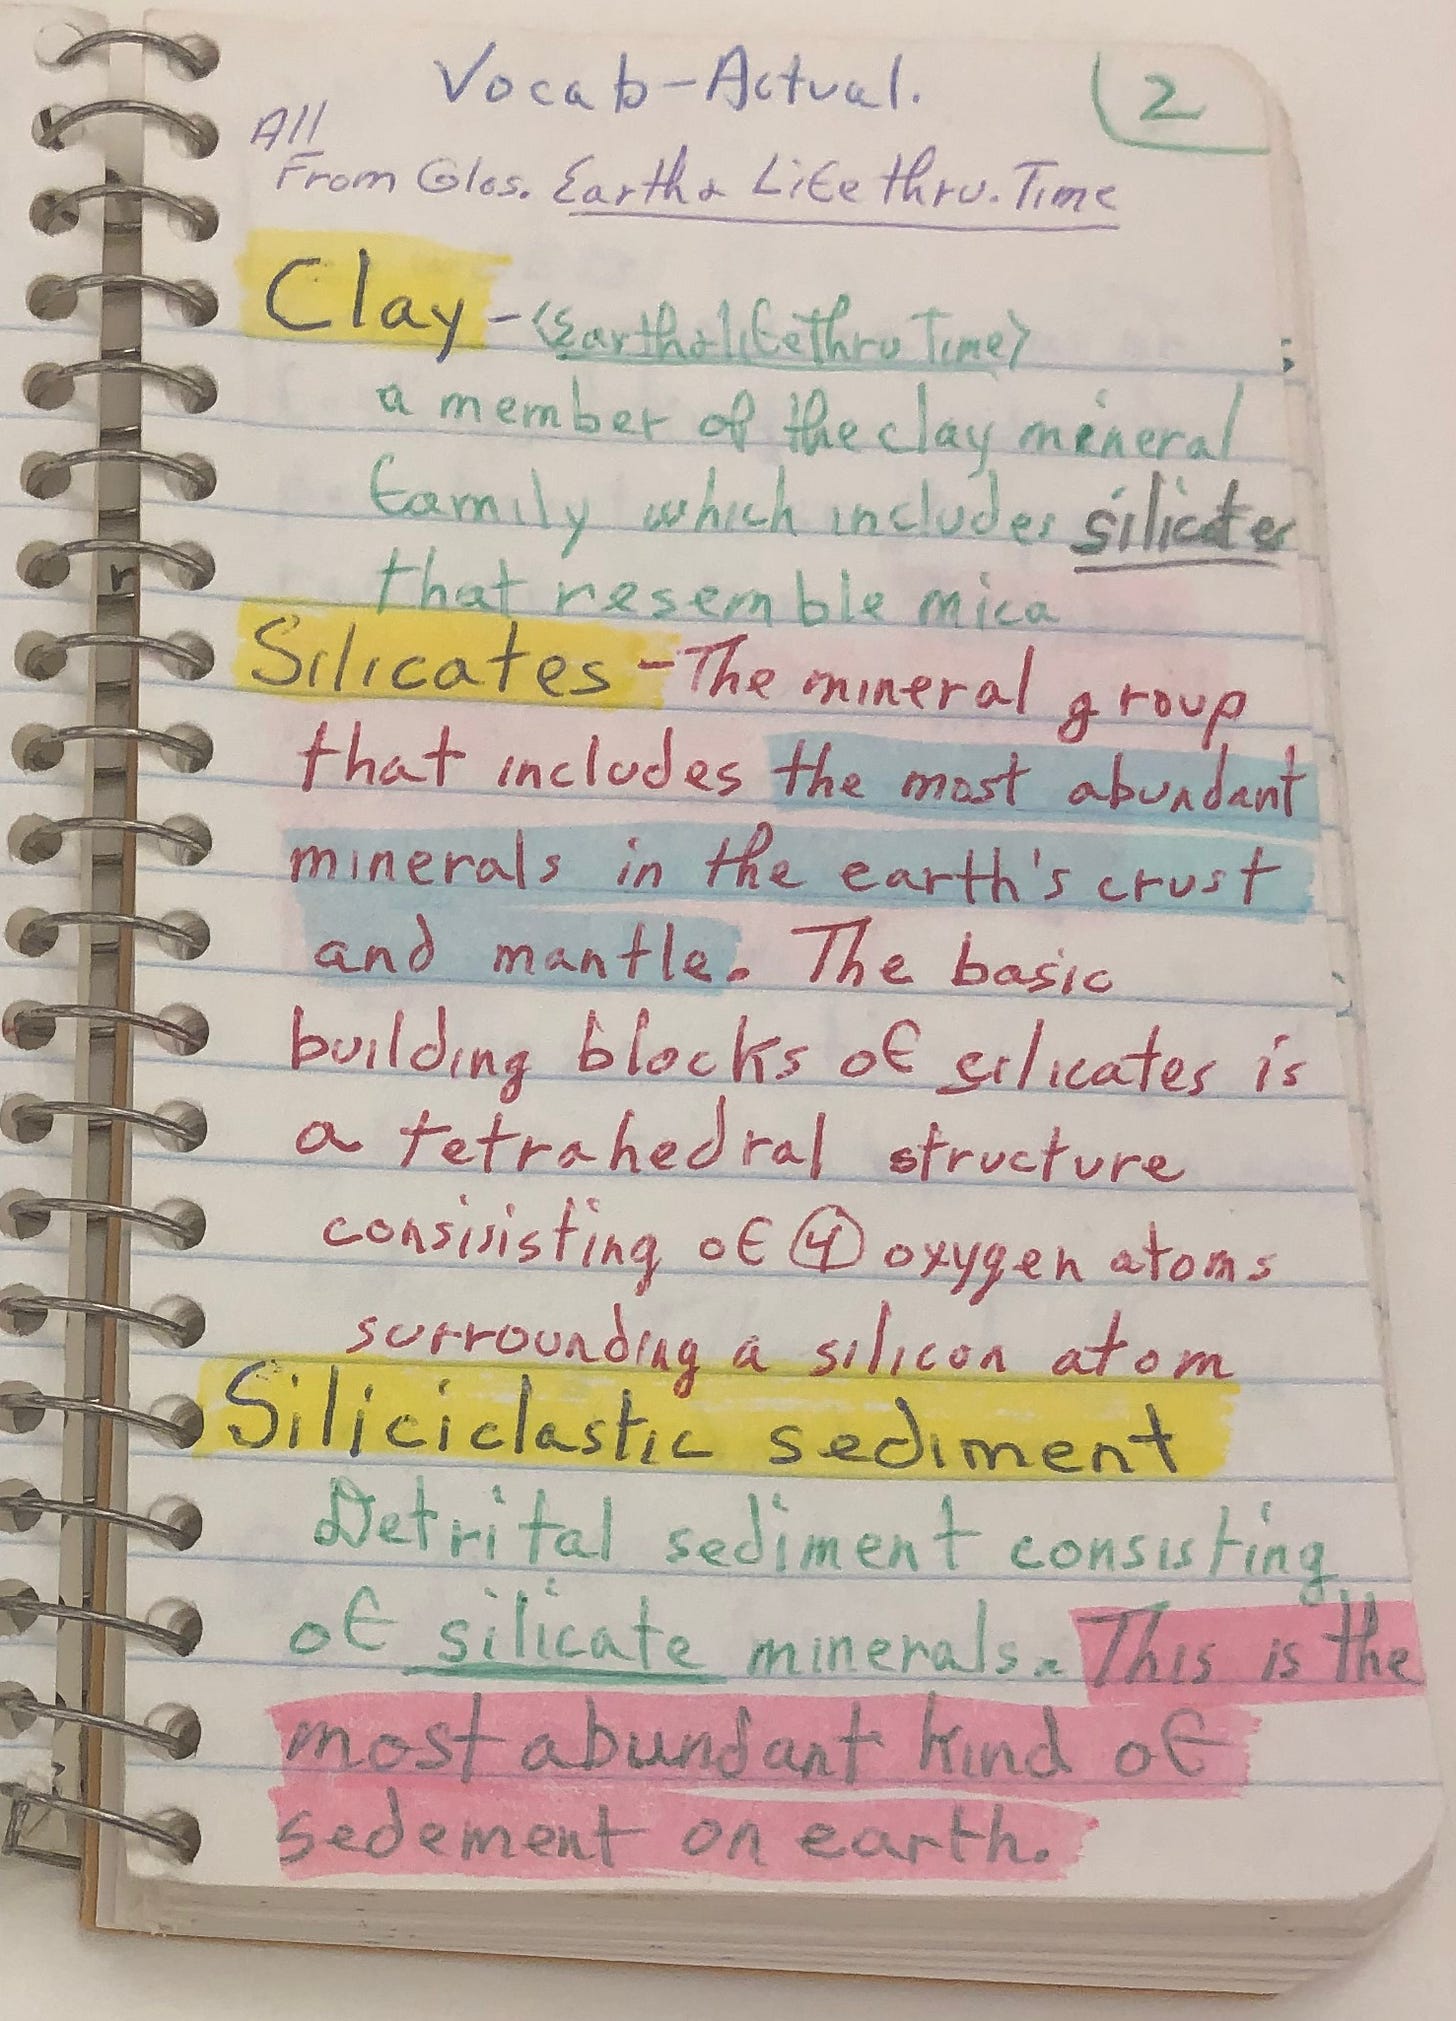 Vocab-Actual.
2
All
From Glos. Earth & Life thru. Time
Clay - <Earth & life thru Time>
a member of the clay mineral
family which includes silicates
that resemble mica
Silicates - The mineral group
that includes the most abundant
minerals in the earth's crust
and mantle. The basic
building blocks of silicates is
a tetrahedral structure
consisisting of 4 oxygen atoms
surrounding a silicon atom
Siliciclastic sediment
Detrital sediment consisting
of silicate minerals. This is the
most abundant kind of
sedement on earth.